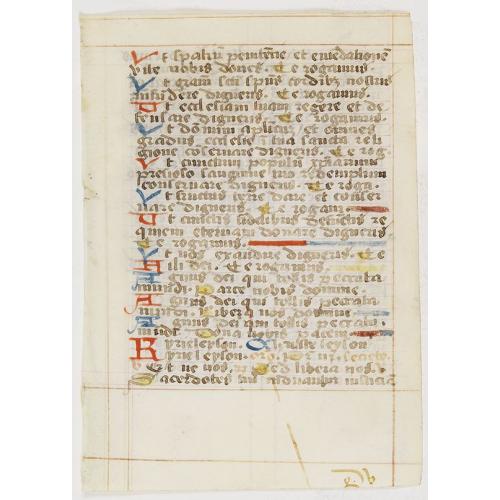 Ut spatiu penitene et emedatione
vite nobis dones. Te rogamus.
Ut gram scti spus cordibz nostris
infudere digneris. Te rogamus.
Ut ecclesiam tuam regere et de
fensare digneris. Te rogamus.
Ut domnu aplicu et omnes
gradus ecclesie in sua sancta reli
gione coservare digneris. Te rog
Ut cunctum populu xpianum
precioso sanguine tuo redemptum
conservare digneris. Te roga
Ut fructus terre dare et conser
vare digneris. Te rogam
Ut cunctis fidelibus defuctis re
quiem eternam donare digneris
Te rogamus.
Ut nos exaudire digneris. Te
fili dei. Te rogamus.
Agnus dei qui tollis peccata
mundi. Parce nobis domine.
Agnus dei qui tollis peccata
mundi. Libera nos domine
Agnus dei qui tollis peccata
mundi. Dona nobis pacem
Kyrieleyson. Christeleyson
Kyrieleyson. Pr nr. secrete
Et ne nos. Sed libera nos.
Sacerdotes tui induantur iusticia